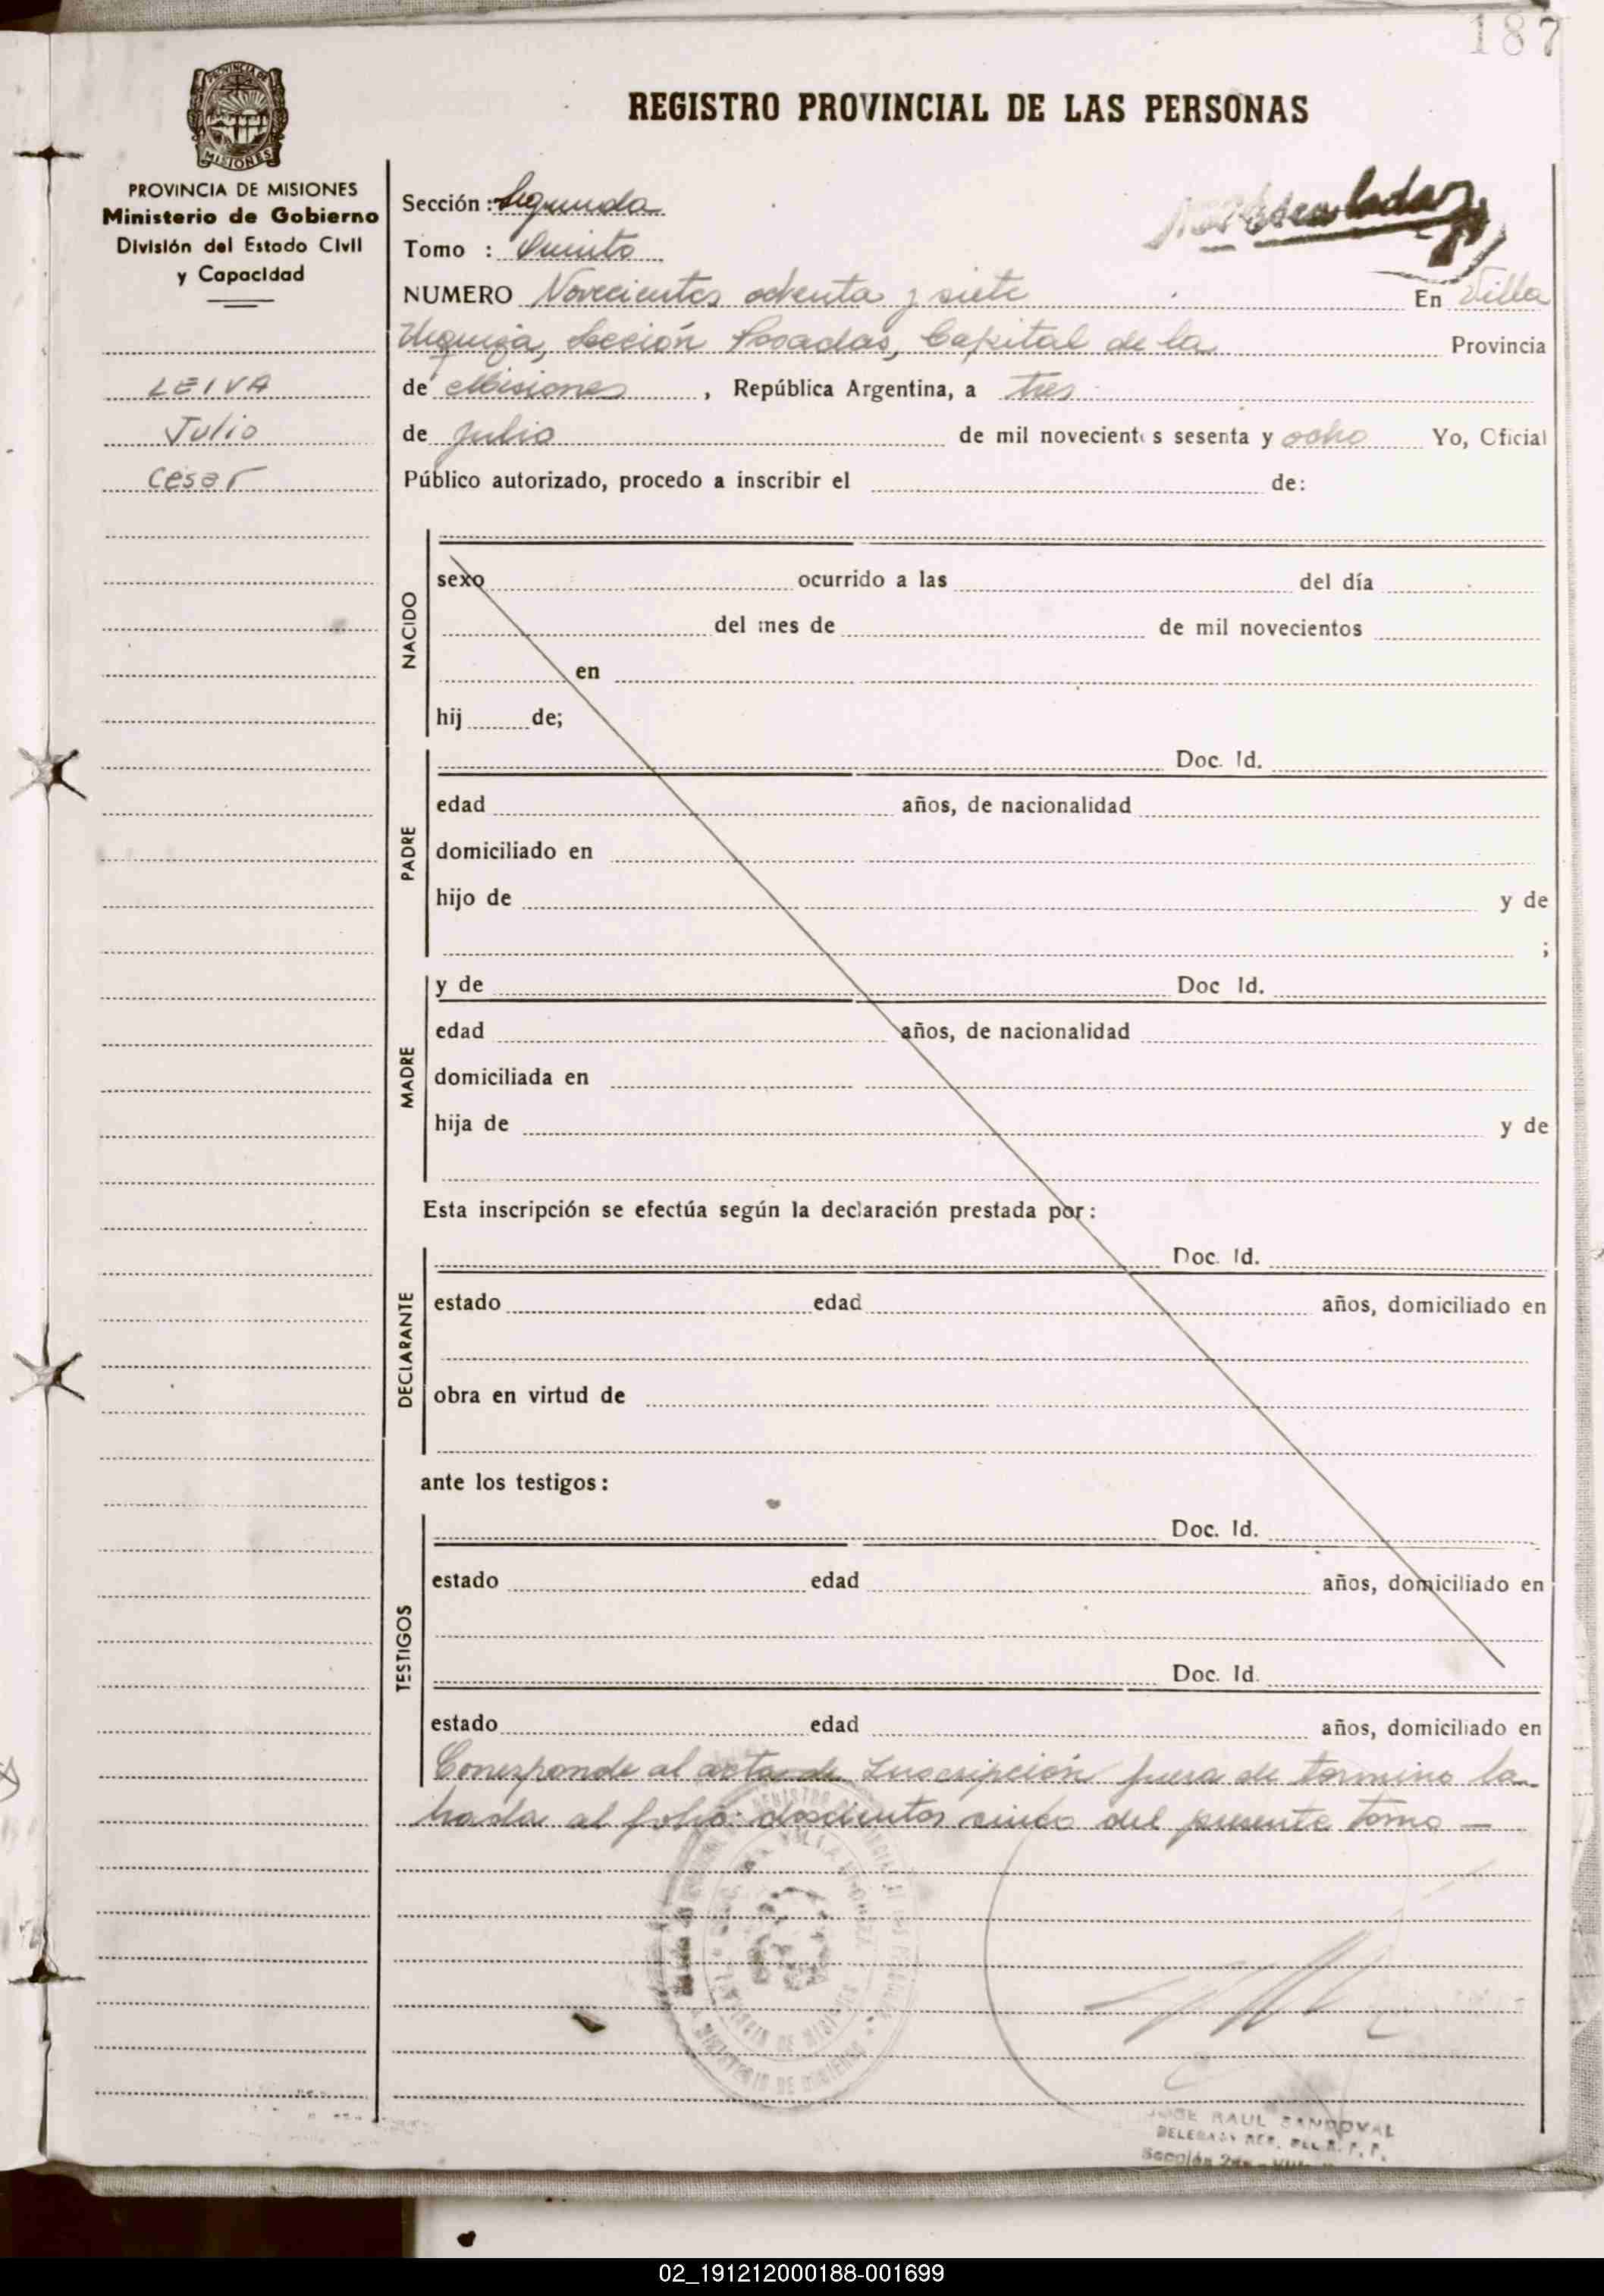 187
REGISTRO PROVINCIAL DE LAS PERSONAS
PROVINCIA DE
MISIONES
PROVINCIA DE MISIONES
Ministerio de Gobierno
División del Estado Civil
y Capacidad
LEIVA
Julio
Cesar
Sección: Segunda
Tomo : Quinto
NUMERO Novecientos ochenta y siete En Villa
Urquiza, Sección Posadas, Capital de la Provincia
de Misiones, República Argentina, a tres
de Julio de mil novecientos sesenta y ocho Yo, Oficial
Público autorizado, procedo a inscribir el de:
NACIDO
sexo ocurrido a las del día
del mes de de mil novecientos
en
hij de;
PADRE
Doc. Id.
edad años, de nacionalidad
domiciliado en
hijo de y de
;
MADRE
y de Doc Id.
edad años, de nacionalidad
domiciliada en
hija de y de
Esta inscripción se efectúa según la declaración prestada por:
DECLARANTE
Doc. Id.
estado edad años, domiciliado en
obra en virtud de
ante los testigos:
TESTIGOS
Doc. Id.
estado edad años, domiciliado en
Doc. Id.
estado edad años, domiciliado en
Corresponde al acta de Inscripción fuera de termino la
brada al folio: doscientos cinco del presente tomo —
MINISTERIO DE GOBIERNO
JOSE RAUL SANDOVAL
Sección 2da
02_191212000188-001699